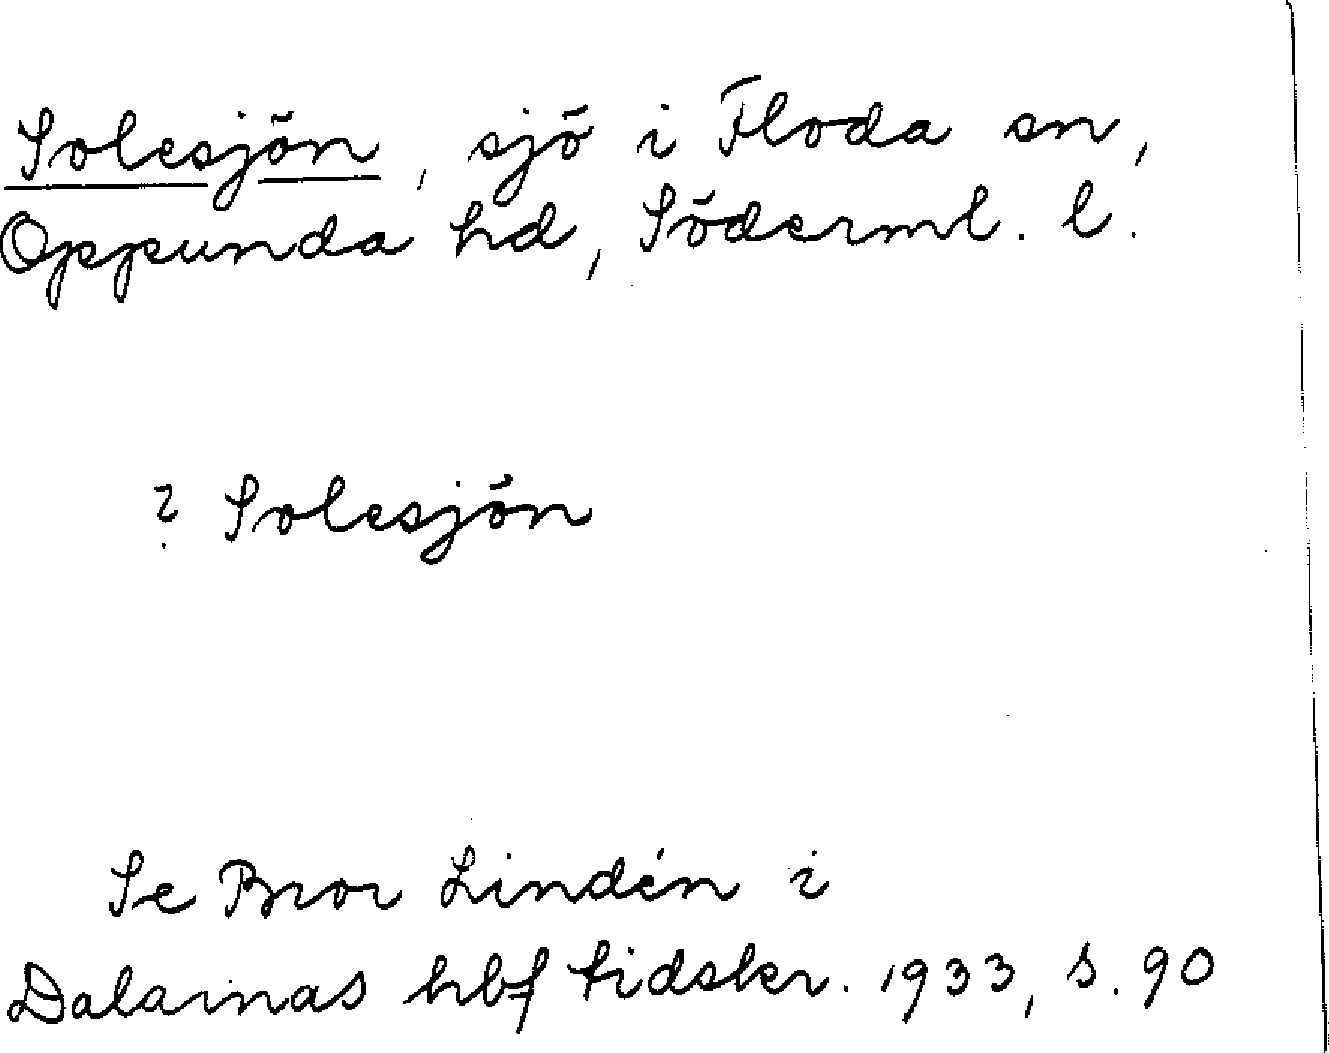 Solesjön, sjö i Floda sn,
Oppunda hd, Söderml. l.
? Solesjön
Se Bror Lindén i
Dalarnas hbf tidskr. 1933, s. 90